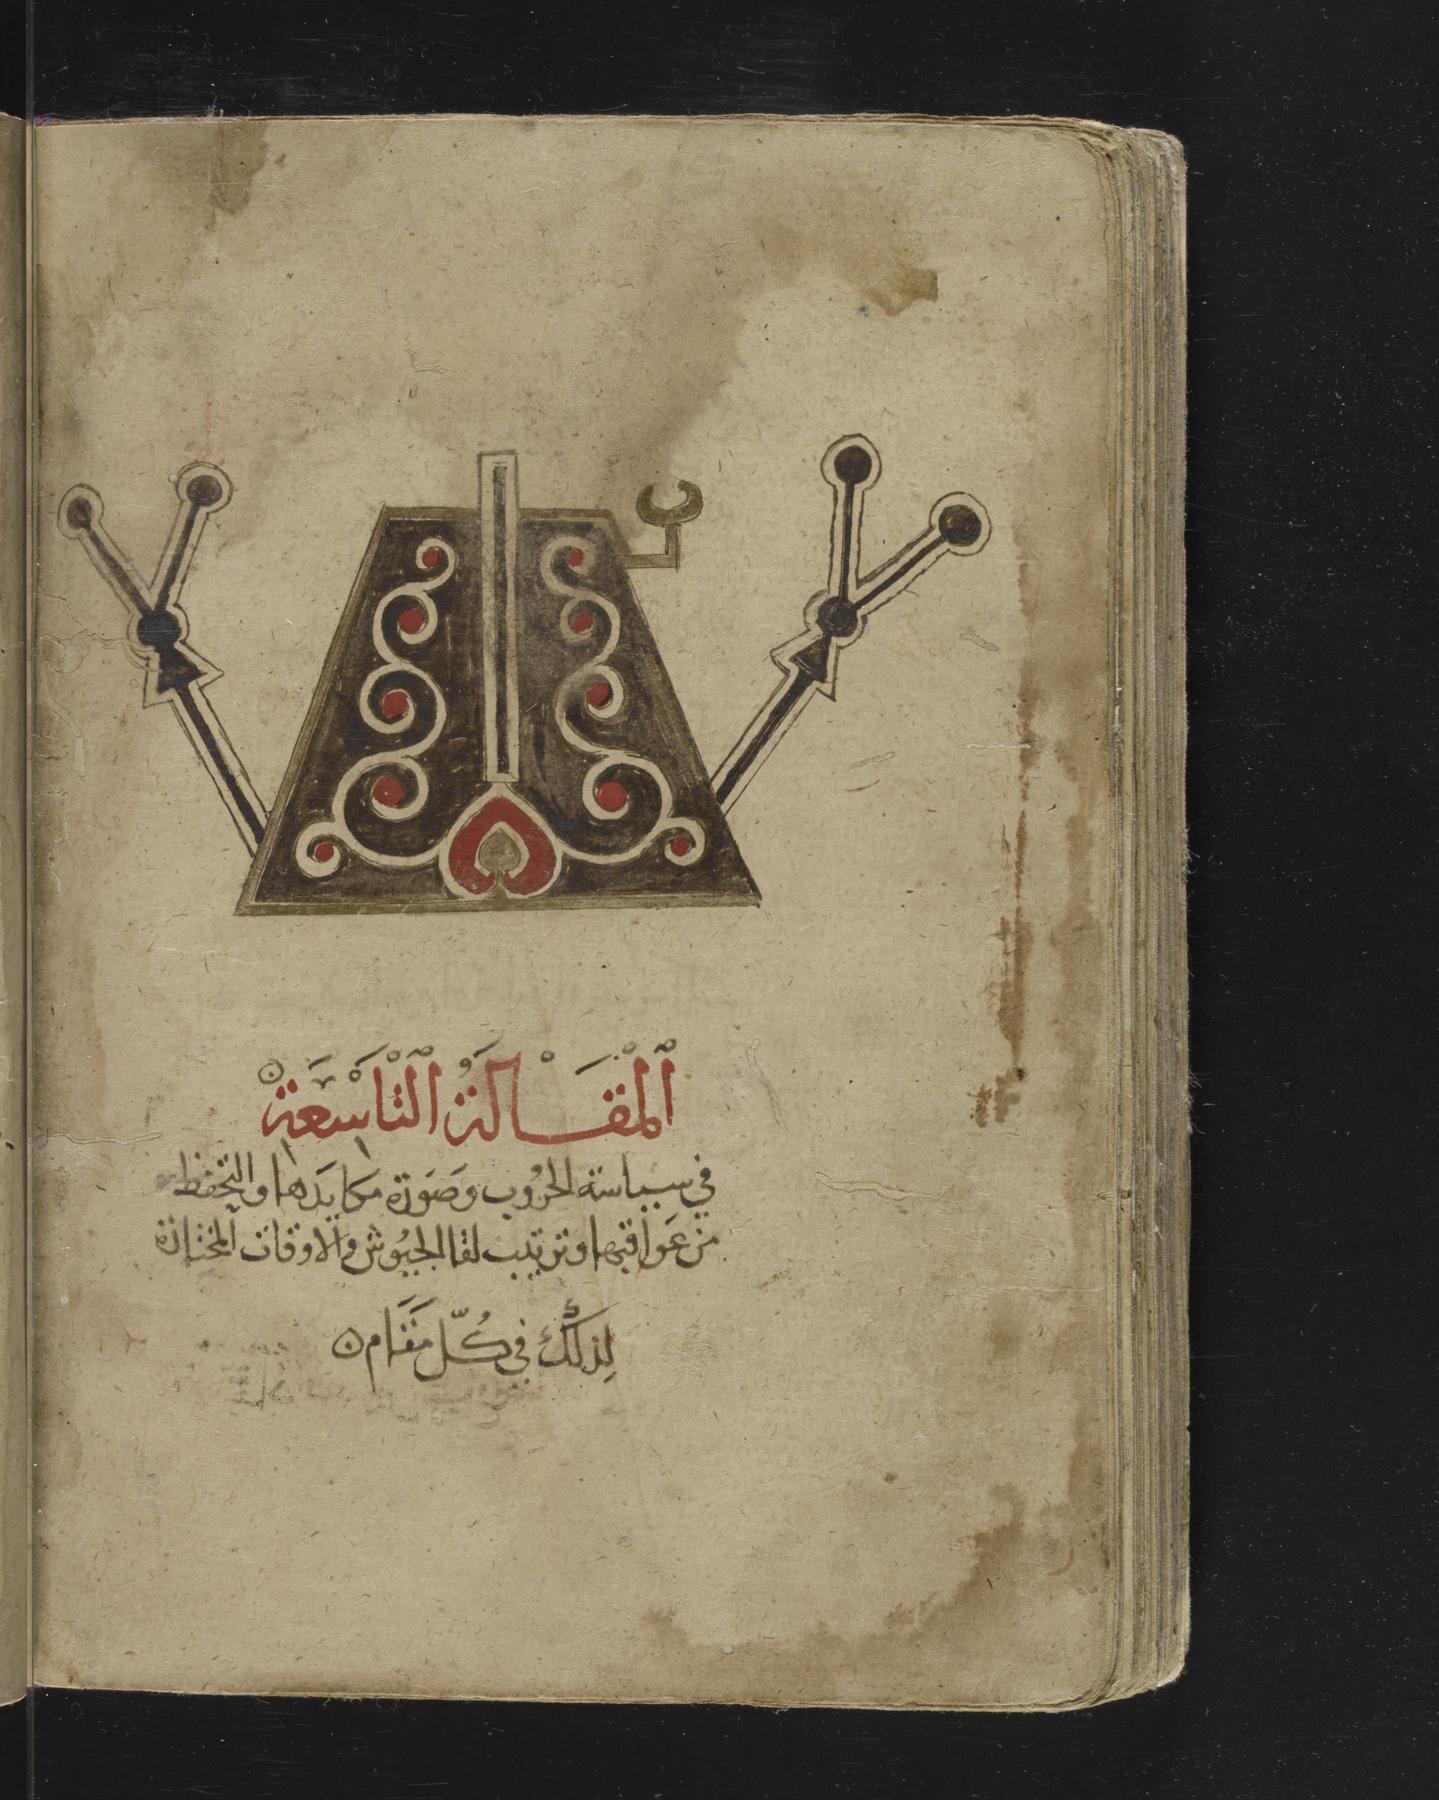 اَلْمَقَالَةُ الْتَّاسِعَة
في سياسة الحرُوب وصَورة مكايدها والتحفظ
من عَواقبها وترتيب لقا الجيُوش والاوقات المختارة
لِذلك في كُلّ مَقَام